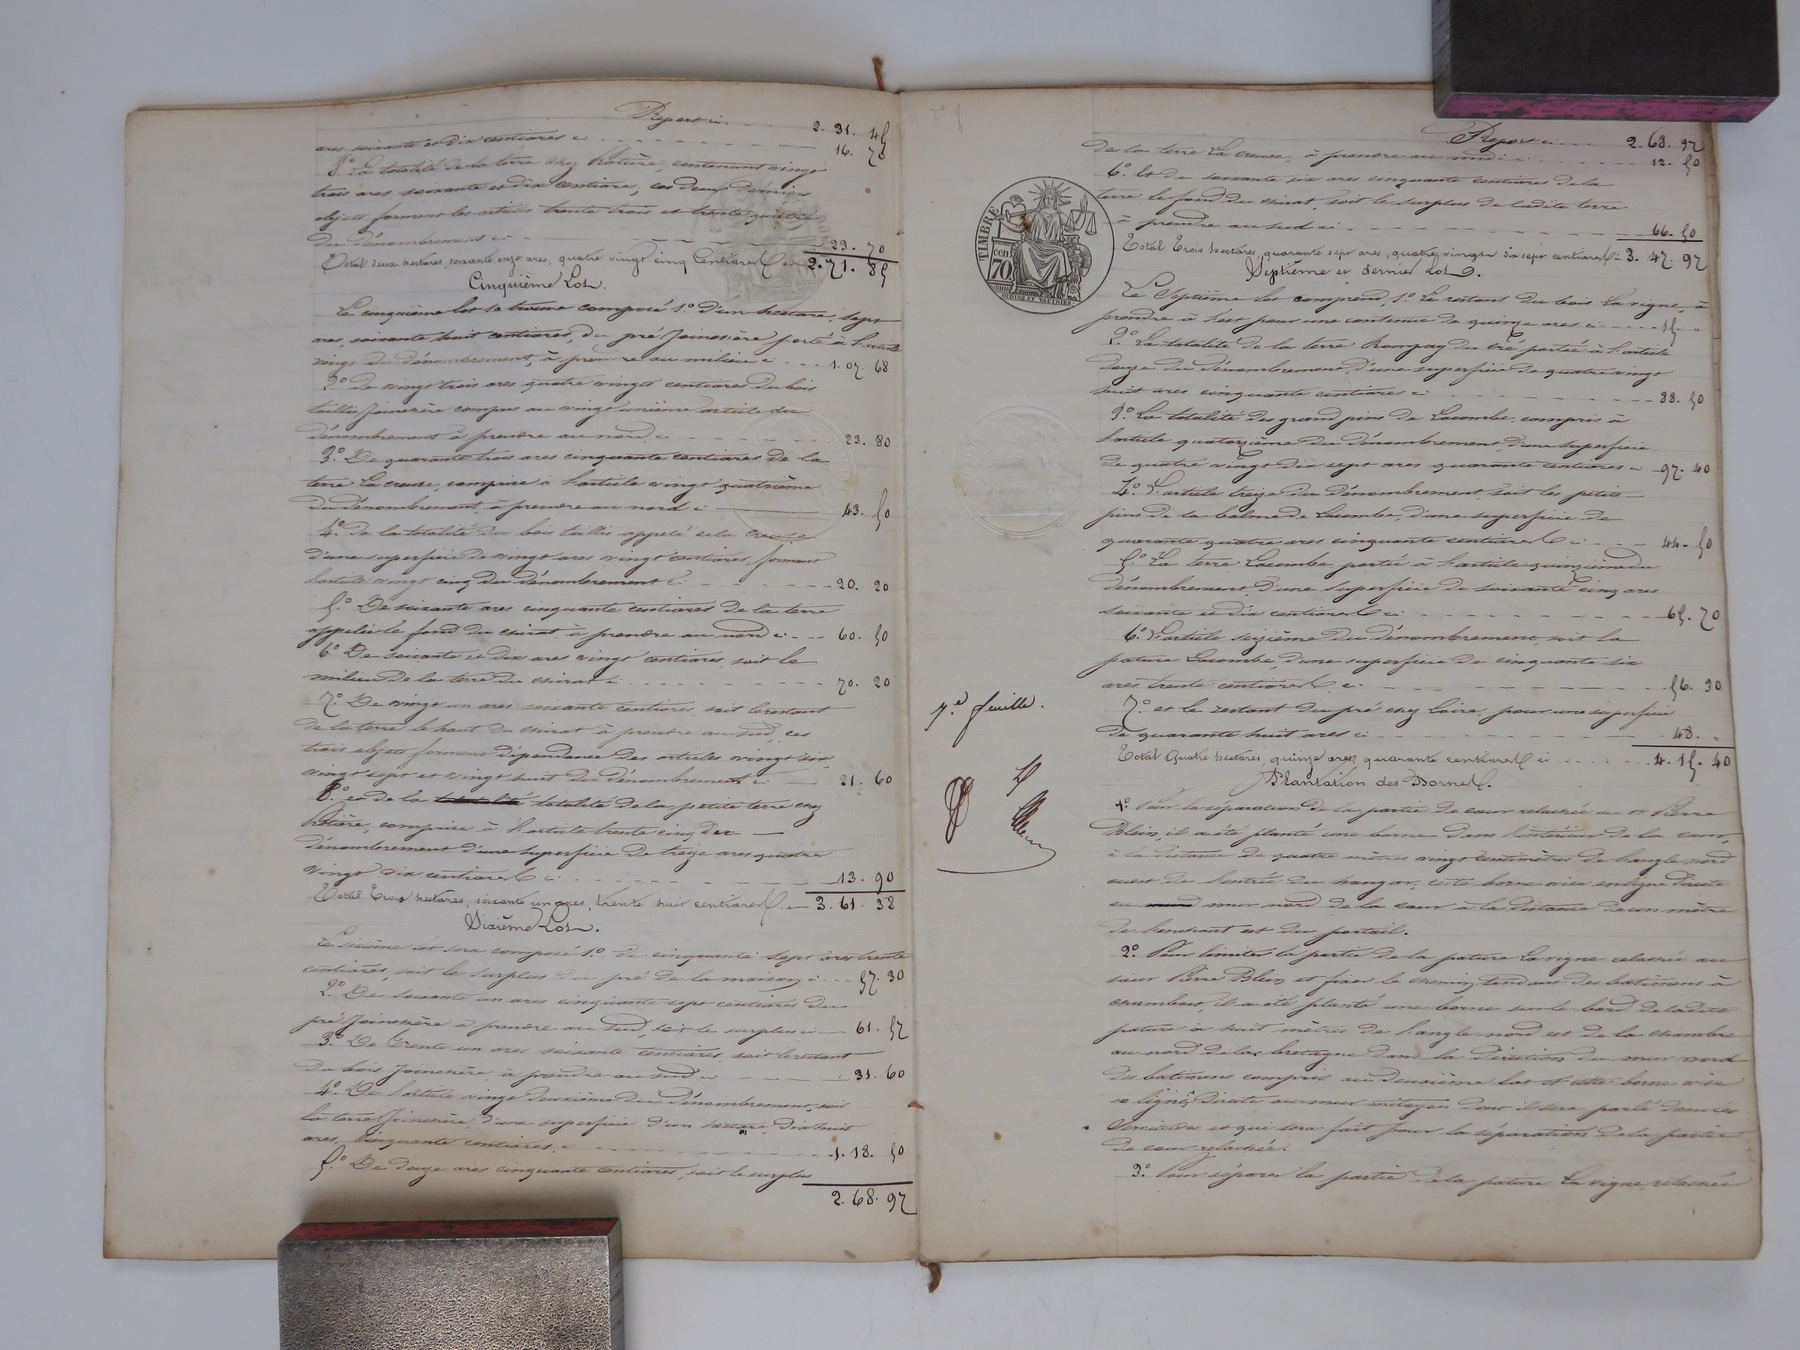 Report ci. 2. 31. 45
ares soixante et dix centiares ci 16. 70
8° La totalité de la terre chez Rotière, contenant vingt
trois ares soixante et dix centiares, ces deux derniers
objets forment les articles trente trois et trente quatre
du dénombrement ci 23. 70
Total deux hectares, soixante onze ares, quatre vingt cinq centiares ci 2. 71. 85
Cinquième Lot.
Le cinquième lot se trouve composé 1° d'un hectare, sept
ares, soixante huit centiares, du pré Joinchère porté à l'article
vingt du dénombrement, à prendre au milieu ci 1. 07. 68
2° de vingt trois ares quatre vingt centiares du bois
taillis Joinchère compris au vingt unième article du
dénombrement à prendre au nord ci 23. 80
3° De quarante trois ares cinquante centiares de la
terre La creuse, comprise à l'article vingt quatrième
du dénombrement, à prendre au nord ci 43. 50
4° de la totalité du bois taillis appelé de la Creuse
d'une superficie de vingt ares vingt centiares, formant
l'article vingt cinq du dénombrement ci 20. 20
5° De soixante ares cinquante centiares de la terre
appelée le fond du chirat à prendre au nord ci 60. 50
6° De soixante et dix ares vingt centiares, soit le
milieu de la terre du chirat ci 70. 20
7° De vingt un ares soixante centiares, soit le restant
de la terre le haut du chirat à prendre au sud, ces
trois objets forment dépendance des articles vingt six
vingt sept et vingt huit du dénombrement ci 21. 60
8° et de la totalité totalité de la petite terre chez
Rotière, comprise à l'article trente cinq du
dénombrement d'une superficie de treize ares quatre
vingt dix centiares ci 13. 90
Total Trois hectares, soixante un ares, trente huit centiares ci 3. 61. 38
Sixième Lot.
Le sixième lot sera composé 1° de cinquante sept ares trente
centiares, soit le surplus du pré de la maison ci 57. 30
2° De soixante un ares cinquante sept centiares du
pré Joinchère à prendre au sud, soit le surplus ci 61. 57
3° De trente un ares soixante centiares, soit le restant
du bois Joinchère à prendre au sud ci 31. 60
4° De l'article vingt deuxième du dénombrement, soit
la terre Joinchère, d'une superficie d'un hectare, dix huit
ares, cinquante centiares, ci 1. 18. 50
5° De douze ares cinquante centiares, soit le surplus
2. 68. 97
Report ci 2. 68. 97
de la terre La creuse, à prendre au midi ci 12. 50
6° Et de soixante six ares cinquante centiares de la
terre le fond du chirat, soit le surplus de ladite terre
à prendre au sud ci 66. 50
Total Trois hectares, quarante sept ares, quatre vingt dix sept centiares ci 3. 47. 97
Septième et dernier Lot.
Le Septième lot comprend, 1° Le restant du bois La vigne, à
prendre à l'est pour une contenue de quinze ares ci 15. "
2° La totalité de la terre Champay du Cré portée à l'article
douze du dénombrement, d'une superficie de quatre vingt
huit ares cinquante centiares ci 88. 50
3° La totalité des grand pins de Lacombe, compris à
l'article quatorzième du dénombrement, d'une superficie
de quatre vingt dix sept ares quarante centiares ci 97. 40
4° L'article treize du dénombrement, soit les petits
pins de la balme de Lacombe, d'une superficie de
quarante quatre ares cinquante centiares ci 44. 50
5° La terre Lacombe portée à l'article quinzième du
dénombrement d'une superficie de soixante cinq ares
soixante et dix centiares ci 65. 70
6° L'article seizième du dénombrement, soit la
pature Lacombe, d'une superficie de cinquante six
ares trente centiares ci 56. 30
7° et le restant du pré chez Loire, pour une superficie
de quarante huit ares ci 48. "
Total Quatre hectares, quinze ares, quarante centiares ci 4. 15. 40
Plantation des Bornes.
1° Pour la séparation de la partie de cour relachée au Sr Pierre
Blein, il a été planté une borne dans l'intérieur de la cour,
à la distance de quatre mètres vingt centimètres de l'angle nord
ouest de l'entrée du hangar, cette borne vise en ligne directe
au mur nord de la cour à la distance de un mètre
du couchant est du portail.
2° Pour limiter la partie de la pature La vigne relachée au
sieur Pierre Blein et fixer le chemin tendant des batiments à
chambost, il a été planté une borne sur le bord de ladite
pature à huit mètres de l'angle nord est de la chambre
au nord de la bretagne dans la direction du mur nord
des batimens compris au deuxième lot et cette borne vise
en ligne directe au mur mitoyen dont il sera parlé dans les
Servitudes et qui sera fait pour la séparation de la partie
de cour relachée.
3° Pour séparer la partie de la pature La vigne, relachée
TIMBRE
70 cen
7e feuille.